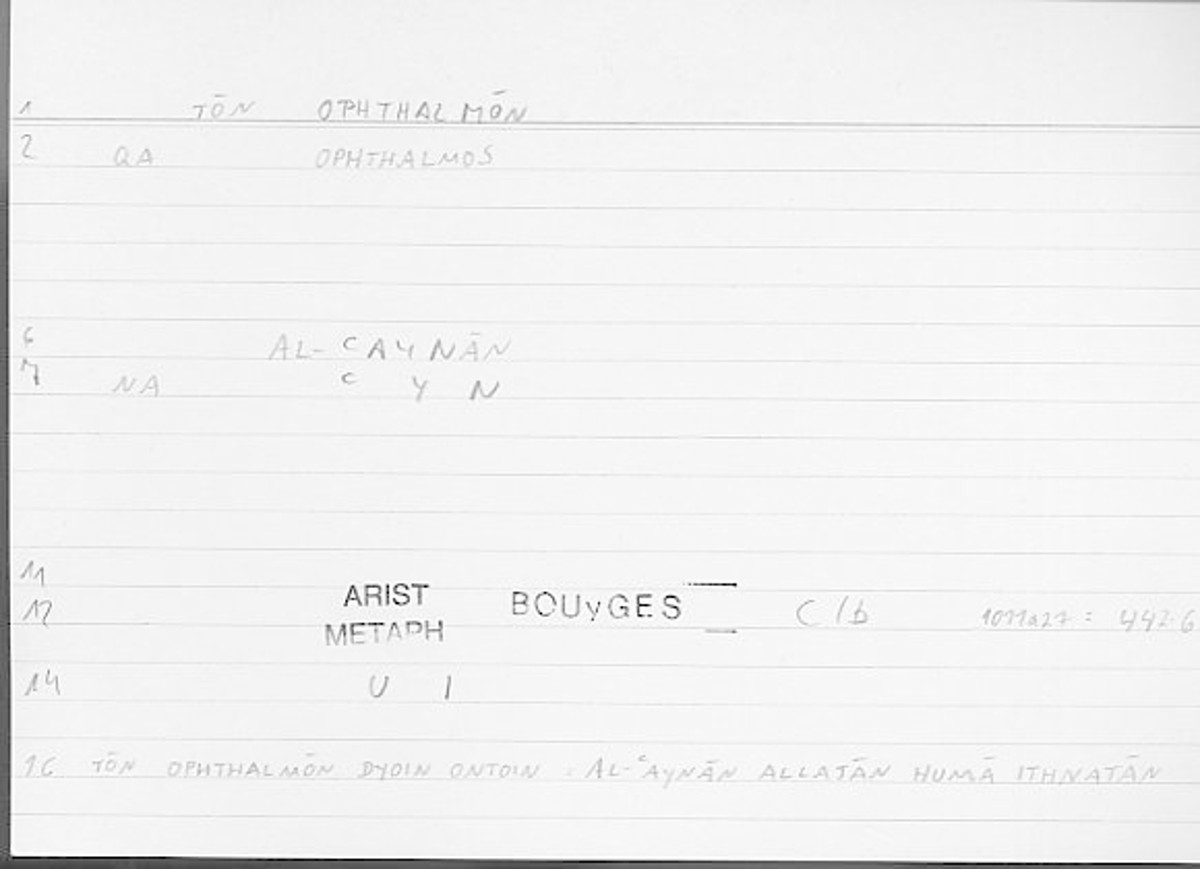 1 TŌN OPHTHALMŌN
2 QA OPHTHALMOS
6 AL-ᶜAYNĀN
7 NA ᶜ Y N
11 ARIST BOUyGES
12 METAPH C 1b 1011a27 : 442.6
14 U I
16 TŌN OPHTHALMŌN DYOIN ONTOIN : AL-ᶜAYNĀN ALLATĀN HUMĀ ITHNATĀN